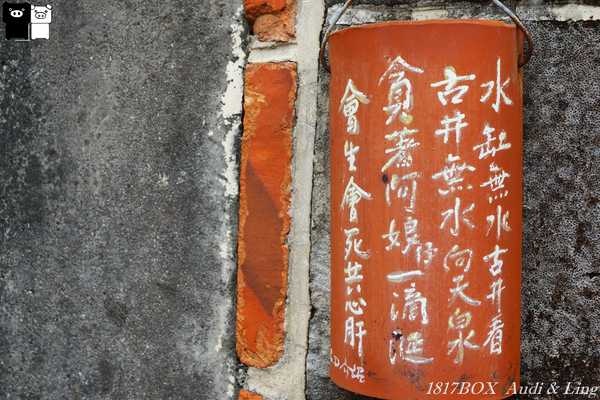 水缸無水古井看
古井無水向天泉
貪著阿娘仔一滴涎
會生會死共心肝
1817BOX Audi & Ling